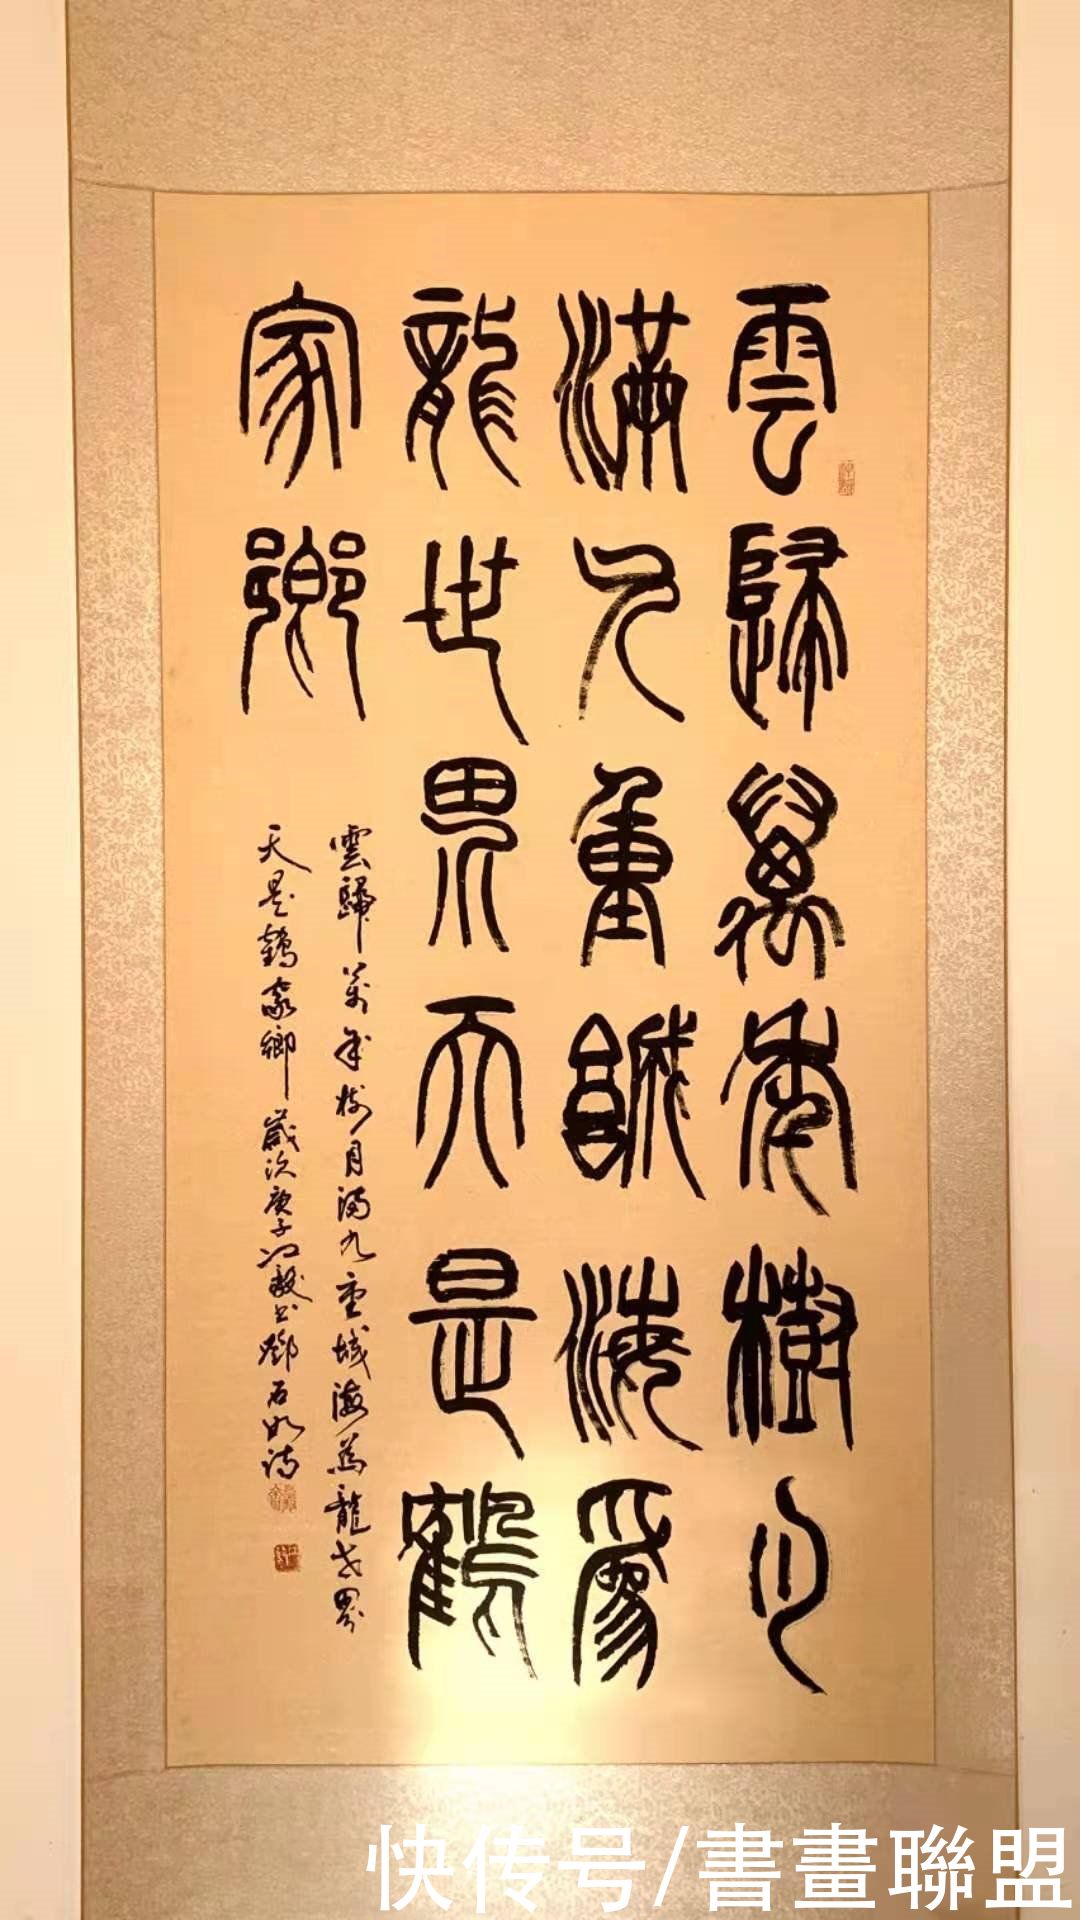 雲歸萬年樹月
滿九重城海爲
龍世界天是鶴
家鄉
雲歸萬年樹月滿九重城海為龍世界
天是鶴家鄉 歲次庚子 書鄧石如詩
快传号/書畫聯盟